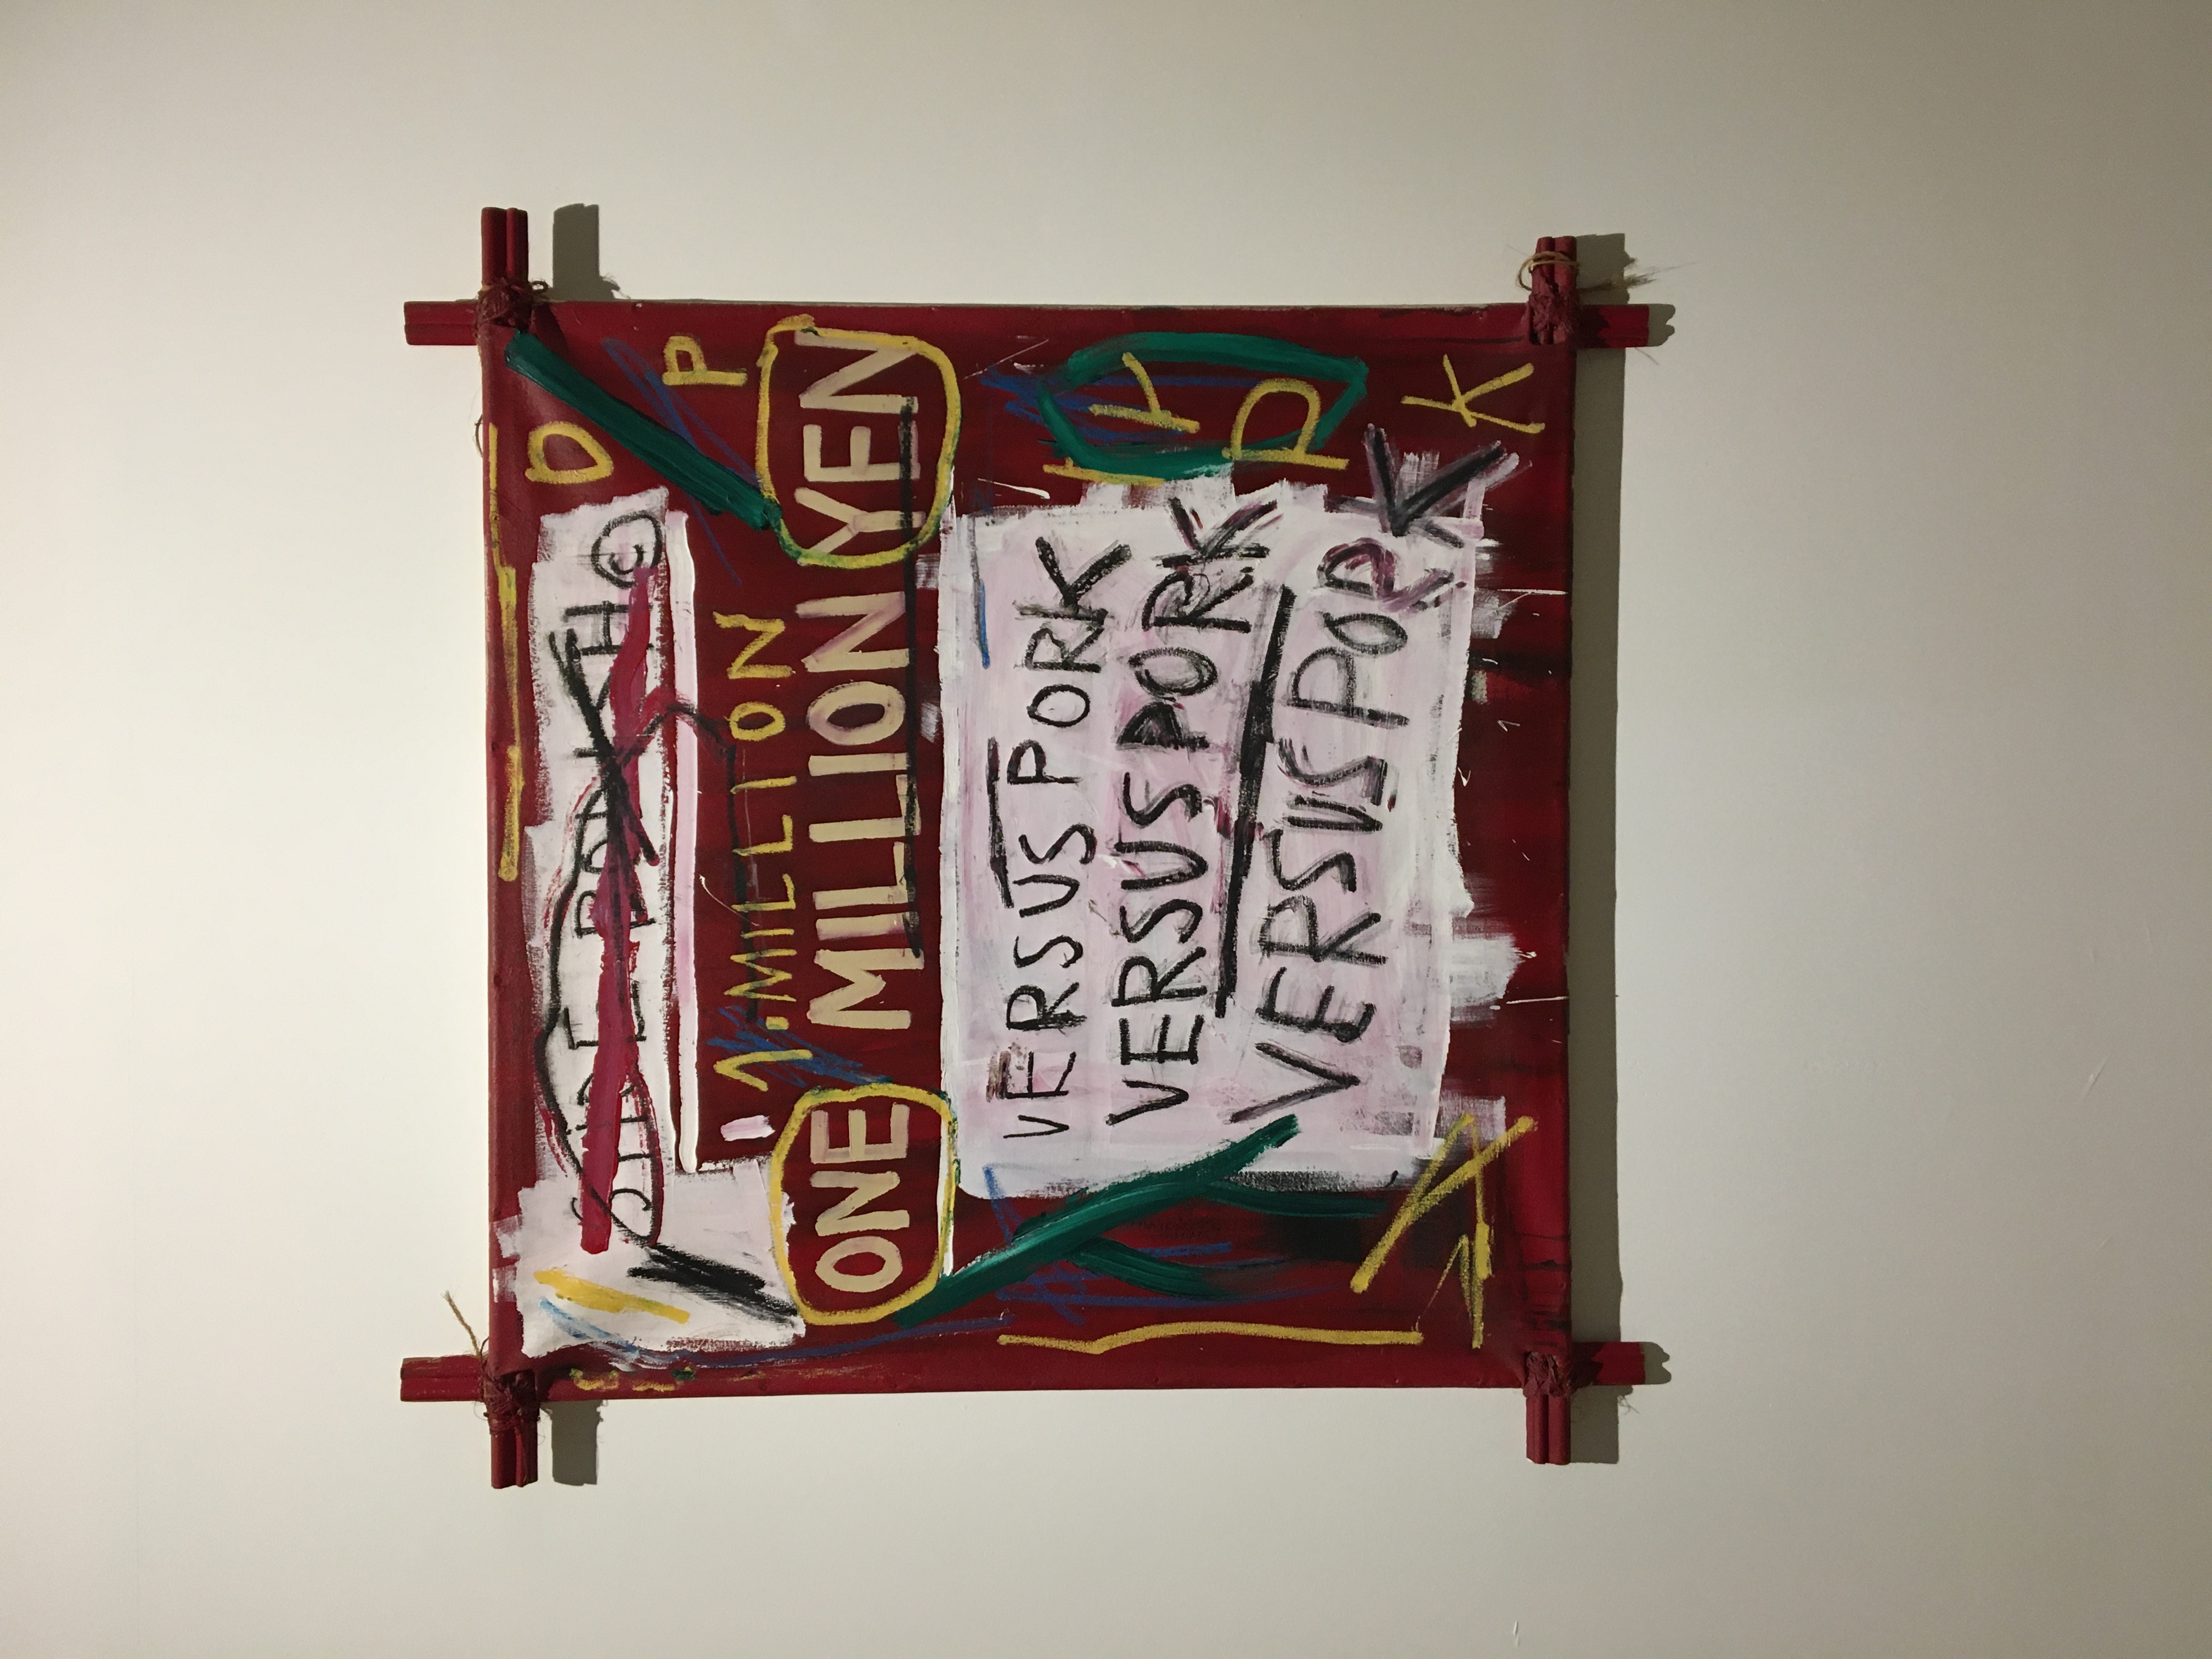 SHOE POLISH©
1.MILLION
ONE MILLION YEN
VERSUS PORK
VERSUS PORK
VERSUS PORK
O
P
Y
P
K